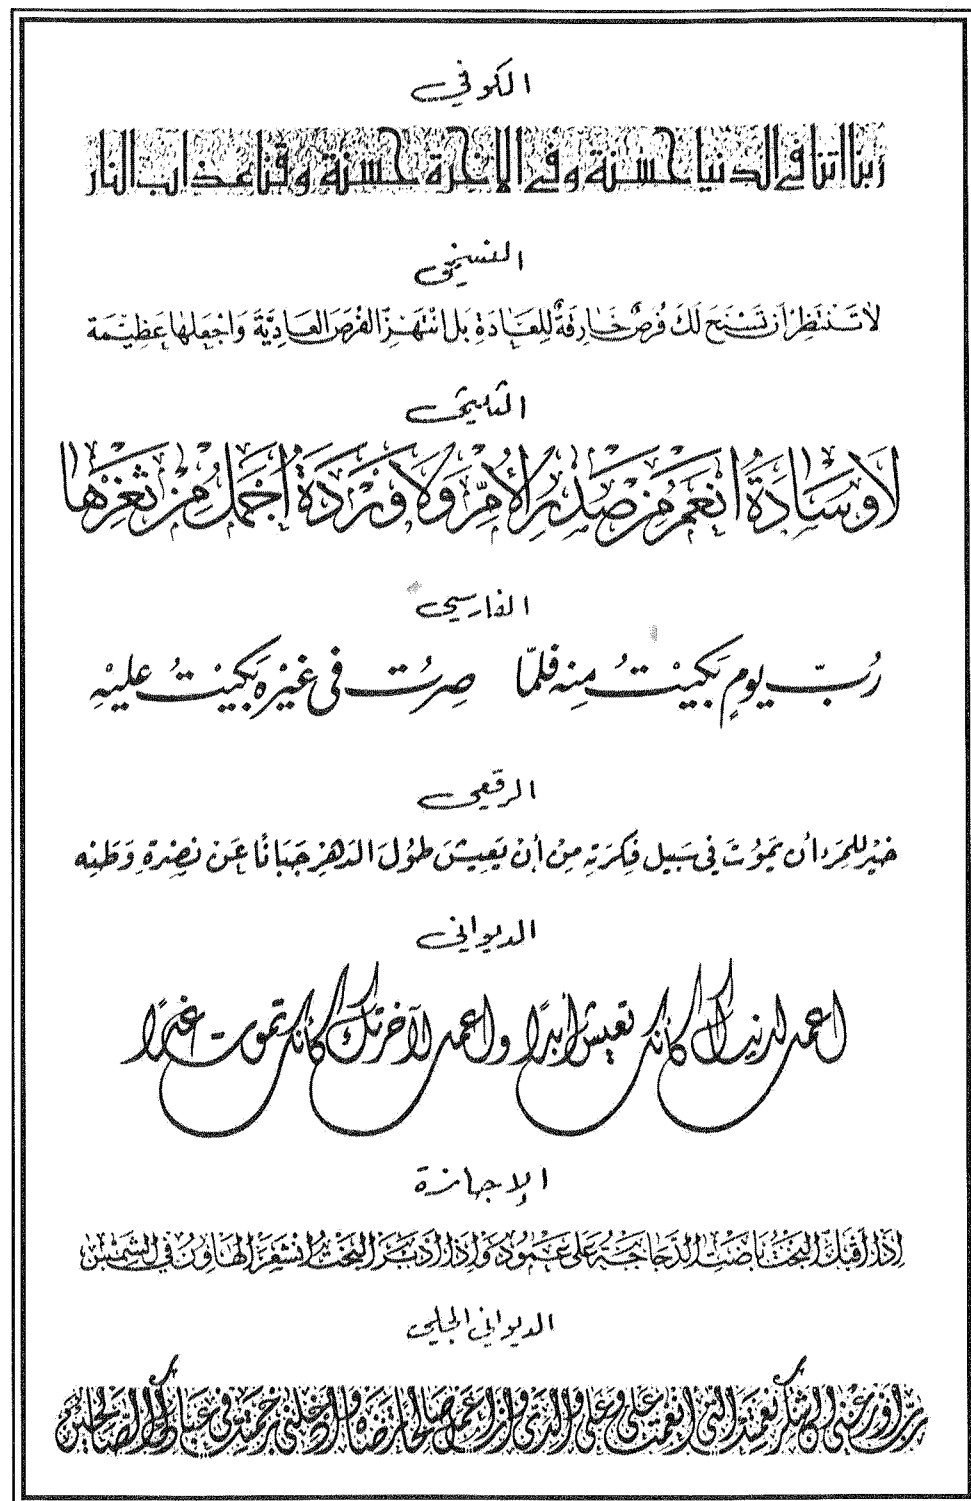 الكوفي
ربنا اتنا في الدنيا حسنة وفي الاخرة حسنة وقنا عذاب النار
النسخي
لا تَنْتَظِرْ أن تَسْنَحَ لَكَ فُرصٌ خَارِقَةٌ لِلعَادَةِ بَل انْتَهِزِ الفُرَصَ العَادِيَّةَ وَاجْعَلها عَظِيْمَة
الثلثي
لَا وسَادَةَ أنْعَم مِنْ صَدْرِ الأُمِّ وَلَا وَرْدَة أجْمَلُ مِنْ ثَغْرِهَا
الفارسي
رُبّ يومٍ بَكيْتُ مِنه فلمّا صِرتُ في غيْرِه بَكيْتُ عليْهِ
الرقعي
خيْر للمَرء أن يَموُتَ في سَبيل فِكرَتِهِ مِنْ أنْ يَعِيشَ طوُلَ الدَهْرِ جَبَانًا عَن نصْرةِ وَطَنِه
الديواني
اعمل لدنياك كأنك تعيش أبدًا واعمل لآخرتك كأنك تموت غدًا
الإجازة
إذَا أقبَلَ البَختُ بَاضَتِ الدَجَاجَةُ عَلى عَمُودٍ وَإذَا أدْبَرَ البَختُ انشَقَّ الهَاوِنُ في الشَمْسِ
الديواني الجلي
رب أوزعني أن أشكر نعمتك التي أنعمت علي وعلى والدي وأن أعمل صالحا ترضاه وأدخلني برحمتك في عبادك الصالحين